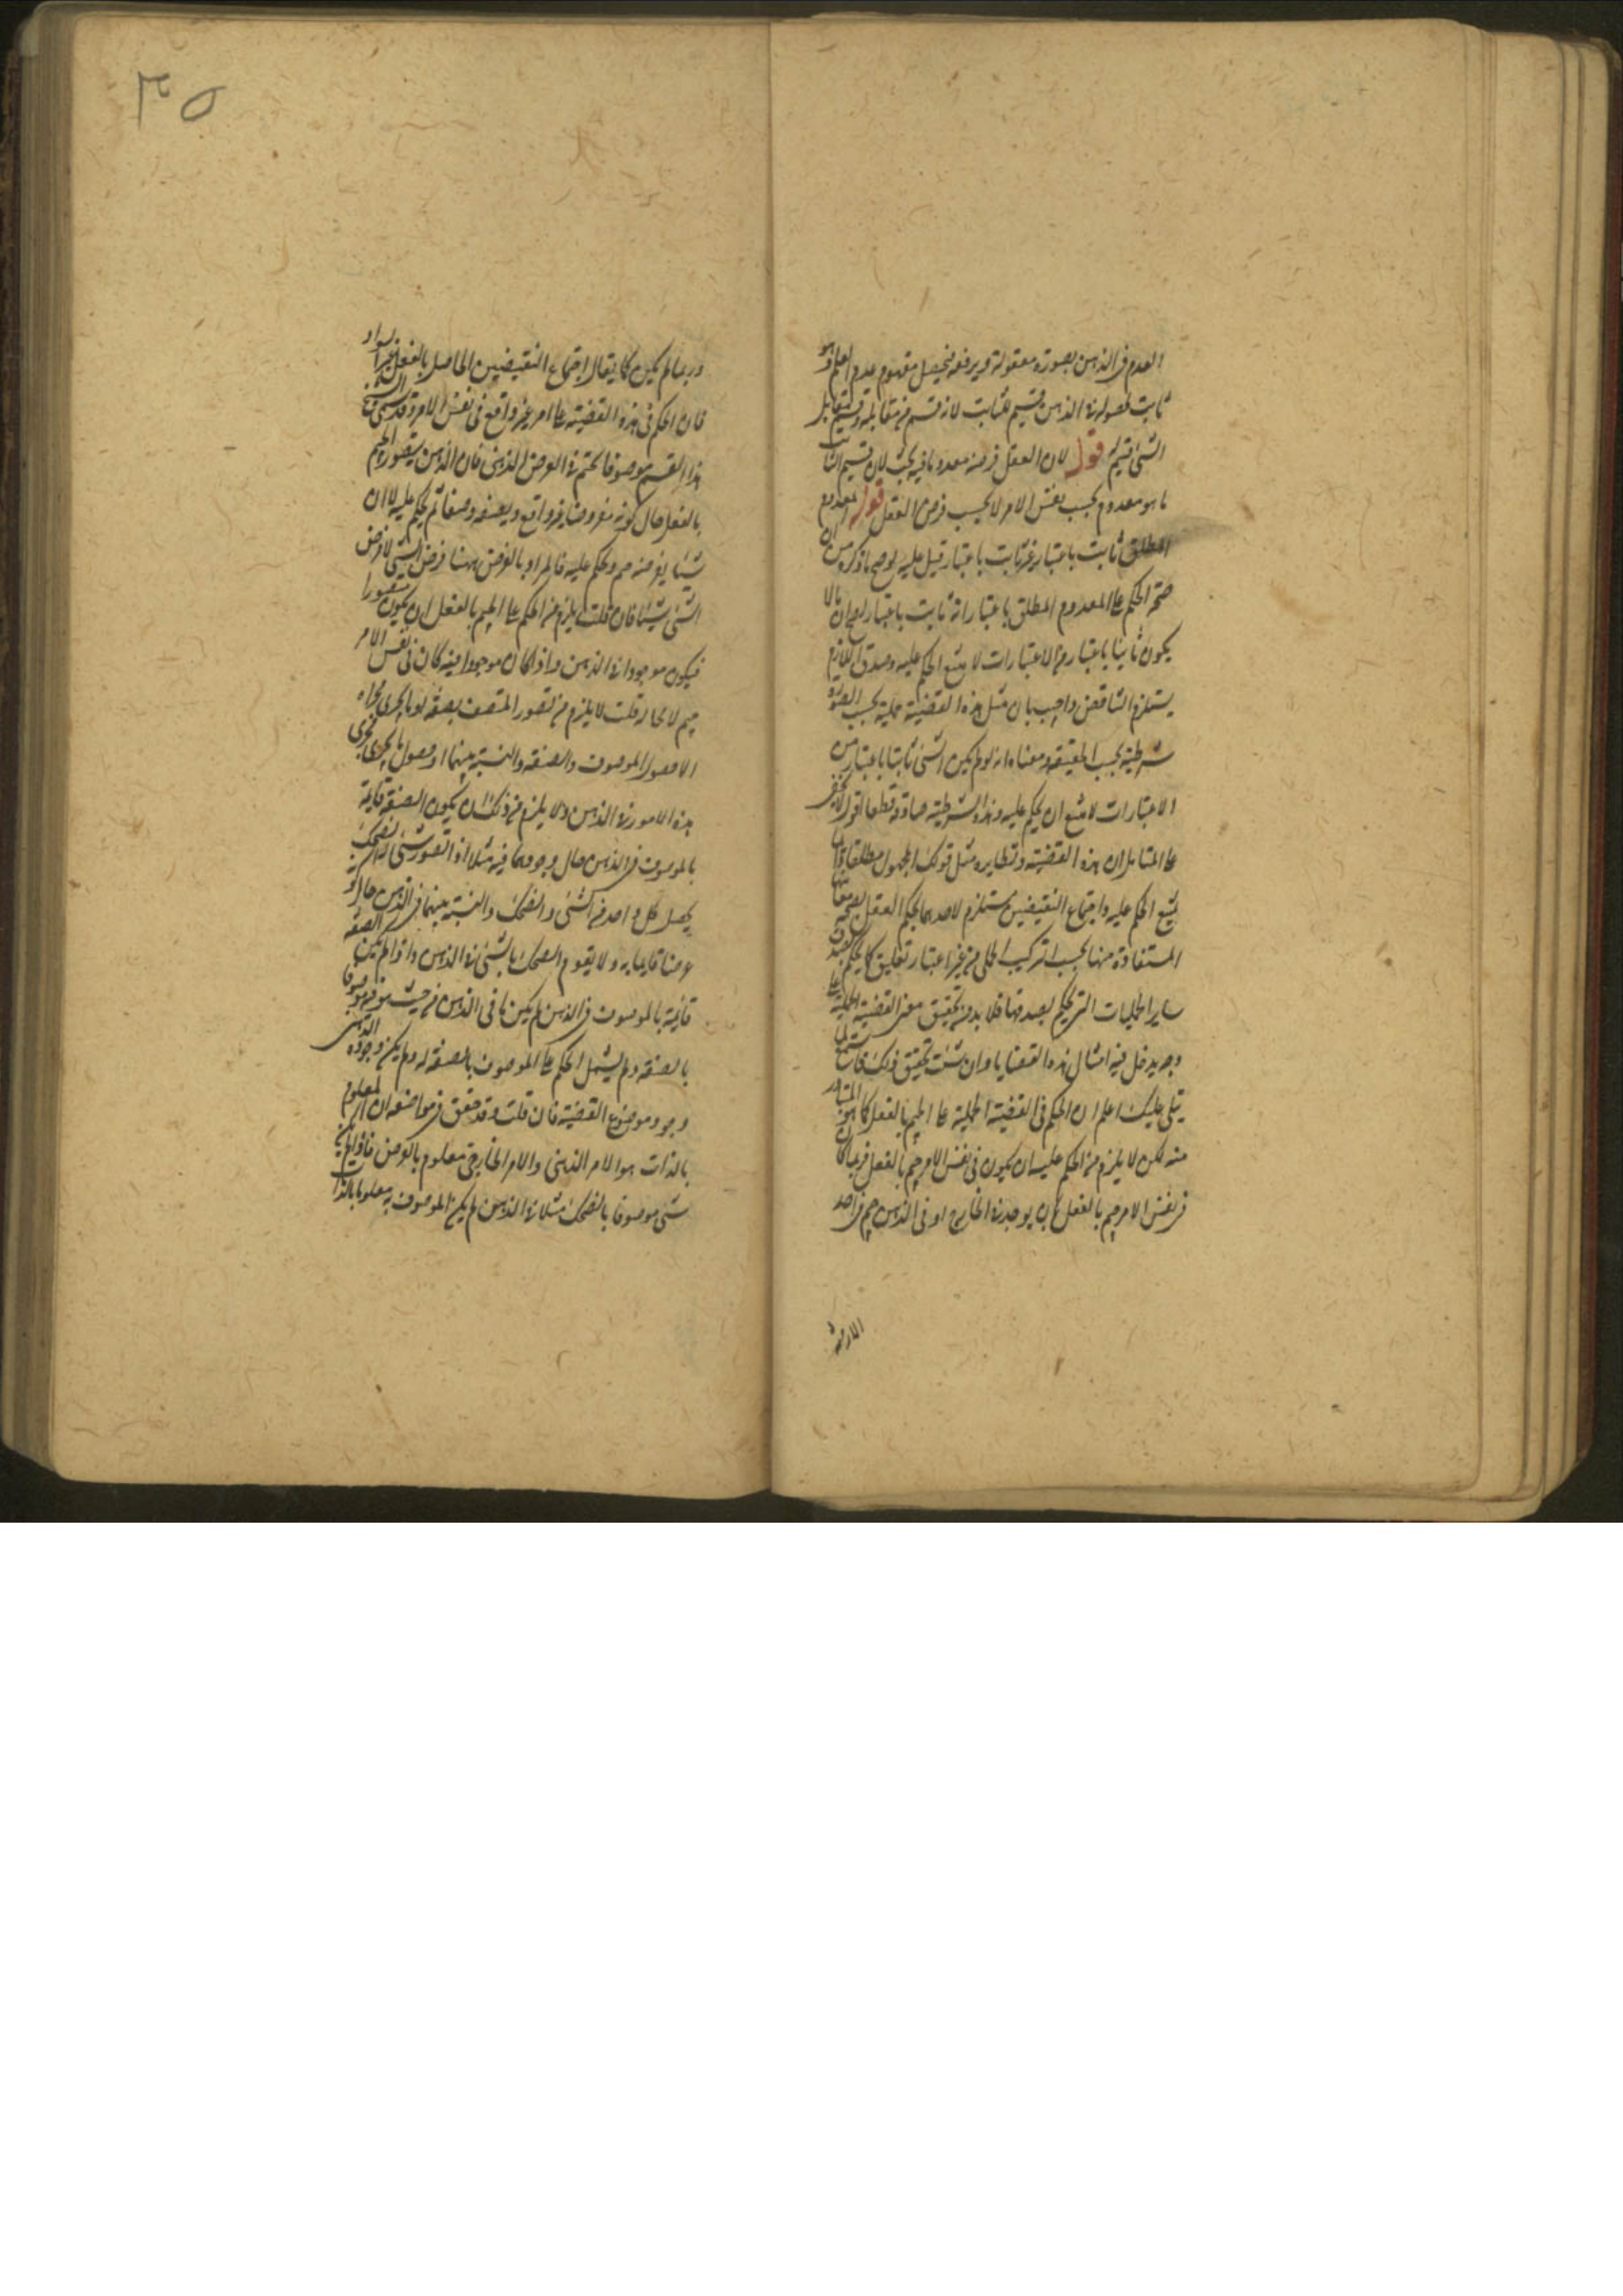 العدم فى الذهن بصورة معقولة ويرفعه فيحصل مفهوم عدم العدم وهو
ثابت لحصوله فى الذهن قسيم للثابت لانه قسم من مقابله وقسم مقابل
الشئ قسيم له قوله لان العقل فرضه معدوما فيه بحث لان قسيم الثابت
ما هو معدوم بحسب نفس الامر لا بحسب فرض العقل قوله المعدوم
المطلق ثابت باعتبار غير ثابت باعتبار قيل عليه لو صح ما ذكره من ان
صحة الحكم على المعدوم المطلق باعتبار انه ثابت باعتبار لصح ان ما لا
يكون ثابتا باعتبار من الاعتبارات لا متنع الحكم عليه وصدق اللازم
يستلزم التناقض واجيب بان مثل هذه القضية حملية بحسب الصورة
شرطية بحسب الحقيقة ومعناه انه لو لم يكن الشئ ثابتا باعتبار من
الاعتبارات لامتنع ان يحكم عليه وهذه الشرطية صادقة قطعا اقول لا يخفى
على المتامل ان هذه القضية ونظايره مثل قولك المجهول مطلقا
يمتنع الحكم عليه واجتماع النقيضين مستلزم لاحدهما يحكم العقل بصحة معانيها
المستفادة منها بحسب التركيب الحملى من غير اعتبار تعليق كما يحكم بصدق
ساير الحمليات التى يحكم بصدقها فلا بد من تحقيق معنى القضية الحملية على
وجه يدخل فيه امثال هذه القضايا وان شئت تحقيق ذلك فاستمع لما
يتلى عليك اعلم ان الحكم فى القضية الحملية على الجيم بالفعل كما هو المتبادر
منه لكن لا يلزم من الحكم عليه ان يكون فى نفس الامر جيم بالفعل فربما كان
فى نفس الامر جيم بالفعل بان يوجد فى الخارج او فى الذهن جيم فى احد
الازمنة
٣٥
وربما لم يكن كما يقال اجتماع النقيضين الحاصل بالفعل
فان الحكم فى هذه القضية على امر غير واقع فى نفس الامر وقد
هذا القسم موصوفا بجيم فى الفرض الذهنى فان الذهن يتصور الجيم
بالفعل حال كونه مفروضا غير واقع ويصفه وصفا ثم يحكم عليه لا ان
شيئا يفرضه جيم ويحكم عليه فالمراد بالفرض ههنا فرض الشئ لا فرض
الشئ شيئا فان قلت يلزم من الحكم على الجيم بالفعل ان يكون متصورا
فيكون موجودا فى الذهن واذا كان موجودا فيه كان فى نفس الامر
جيم لا محالة قلت لا يلزم من تصور المتصف بصفة او ما يجرى مجراه
الا حصول الموصوف والصفة والنسبة بينهما او حصول ما يجرى مجرى
هذه الامور فى الذهن ولا يلزم من ذلك ان يكون الصفة قائمة
بالموصوف فى الذهن حال وجودها فيه مثلا اذا تصور شئ له الضحك
يحصل كل واحد من الشئ والضحك والنسبة بينهما فى الذهن حال كونه
عرضا قايما به ولا يقوم الضحك بالشئ فى الذهن واذا لم يكن الصفة
قائمة بالموصوف فى الذهن لم يكن ما فى الذهن من حيث هو فيه موصوفا
بالصفة ولم يشمل الحكم على الموصوف بالصفة له ولم يكن وجوده الذهنى
وجود موضوع القضية فان قلت وقد حقق فى مواضعه ان المعلوم
بالذات هو الامر الذهنى والامر الخارجى معلوم بالعرض فاذا لم يكن
شئ موصوفا بالضحك مثلا فى الذهن لم يكن الموصوف به معلوما بالذات